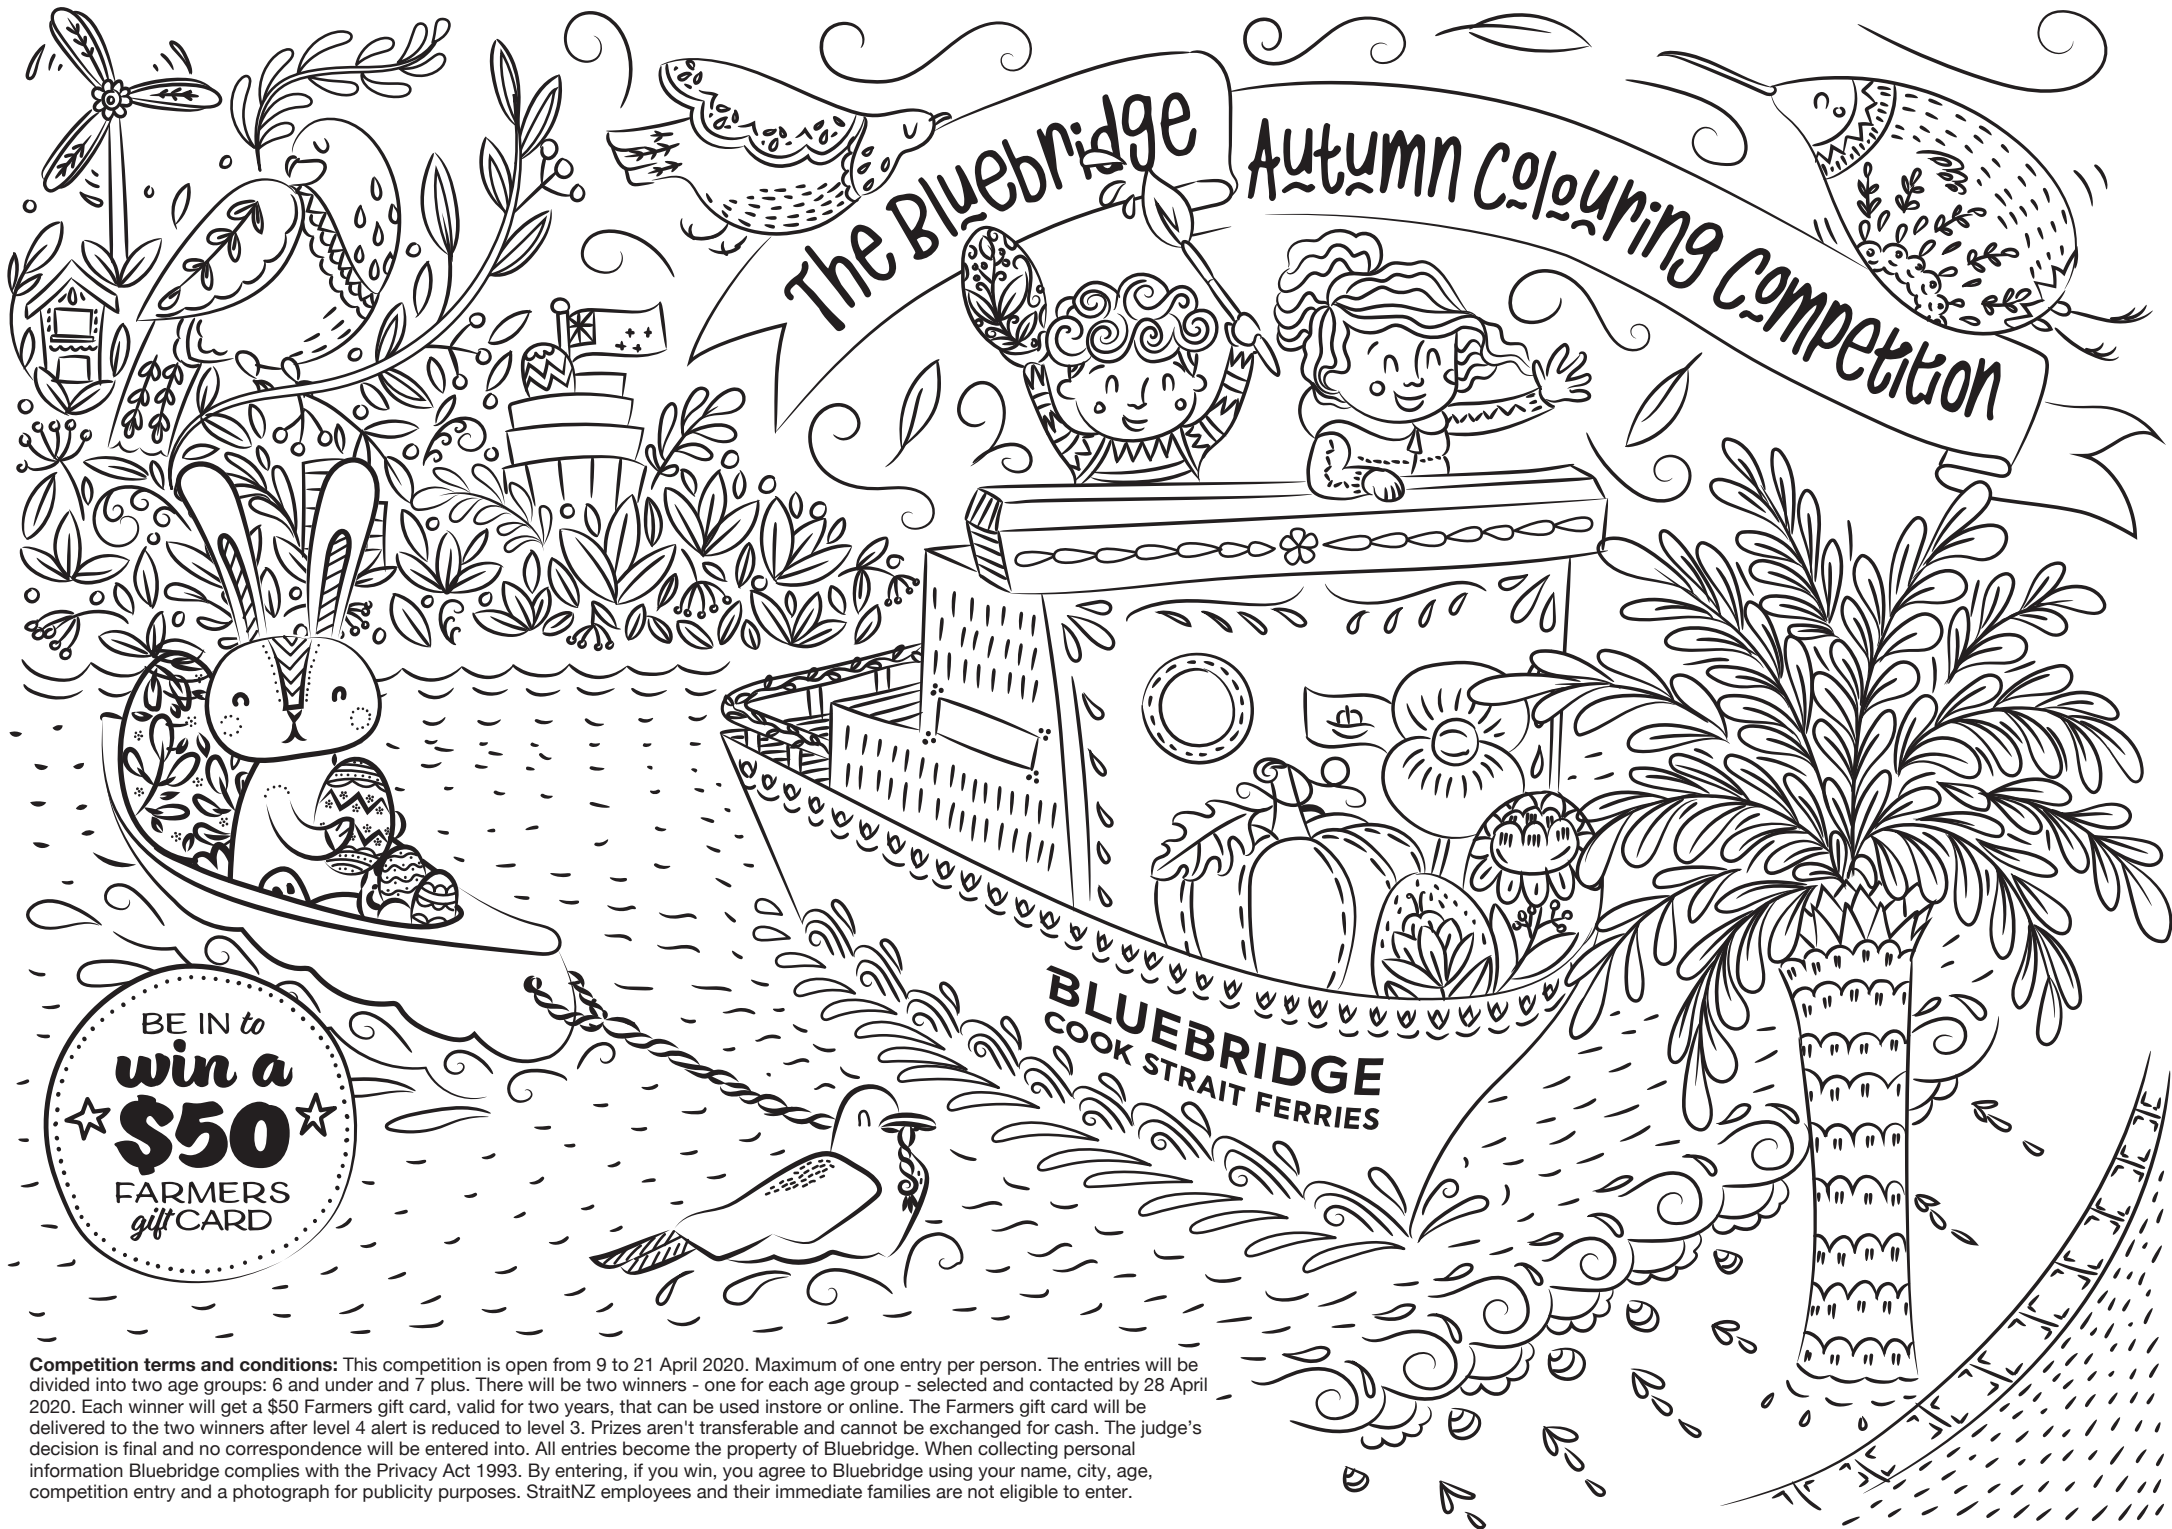 The Bluebridge Autumn Colouring Competition
BLUEBRIDGE
COOK STRAIT FERRIES
BE IN to
win a
$50
FARMERS
gift CARD
Competition terms and conditions: This competition is open from 9 to 21 April 2020. Maximum of one entry per person. The entries will be
divided into two age groups: 6 and under and 7 plus. There will be two winners - one for each age group - selected and contacted by 28 April
2020. Each winner will get a $50 Farmers gift card, valid for two years, that can be used instore or online. The Farmers gift card will be
delivered to the two winners after level 4 alert is reduced to level 3. Prizes aren't transferable and cannot be exchanged for cash. The judge’s
decision is final and no correspondence will be entered into. All entries become the property of Bluebridge. When collecting personal
information Bluebridge complies with the Privacy Act 1993. By entering, if you win, you agree to Bluebridge using your name, city, age,
competition entry and a photograph for publicity purposes. StraitNZ employees and their immediate families are not eligible to enter.